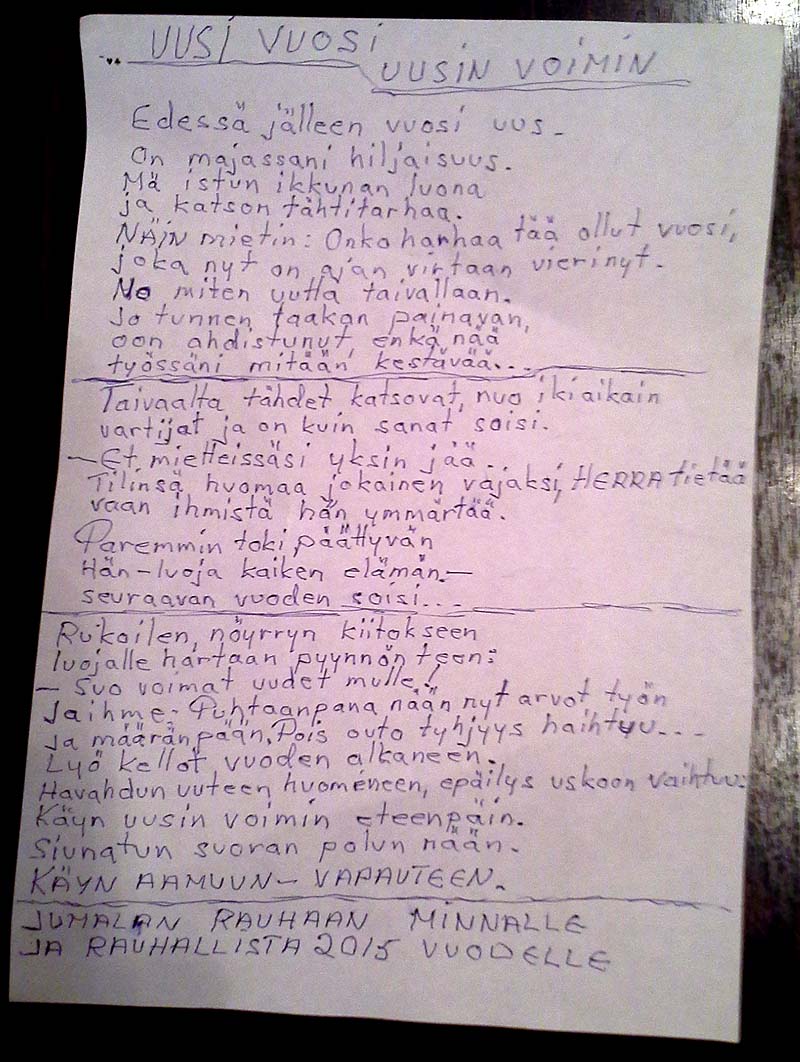 UUSI VUOSI
UUSIN VOIMIN
Edessä jälleen vuosi uus -
On majassani hiljaisuus.
Mä istun ikkunan luona
ja katson tähtitarhaa.
NÄIN mietin: Onko harhaa tää ollut vuosi,
joka nyt on ajan virtaan vierinyt.
No miten uutta taivallaan.
Jo tunnen taakan painavan,
oon ahdistunut, enkä nää
työssäni mitään kestävää...
Taivaalta tähdet katsovat, nuo ikiaikain
vartijat ja on kuin sanat soisi.
- Et mietteissäsi yksin jää..
Tilinsä huomaa jokainen vajaksi, HERRA tietää
vaan ihmistä hän ymmärtää.
Paremmin toki päättyvän
Hän - luoja kaiken elämän -
seuraavan vuoden soisi...
Rukoilen, nöyrryn kiitokseen
luojalle hartaan pyynnön teen:
- Suo voimat uudet mulle!
Ja ihme: Puhtaanpana nään nyt arvot työn
ja määränpään. Pois outo tyhjyys haihtuu...
Lyö kellot vuoden alkaneen.
Havahdun uuteen huomeneen, epäilys uskoon vaihtuu.
Käyn uusin voimin eteenpäin.
Siunatun suoran polun nään.
KÄYN AAMUUN - VAPAUTEEN.
JUMALAN RAUHAAN MINNALLE
JA RAUHALLISTA 2015 VUODELLE